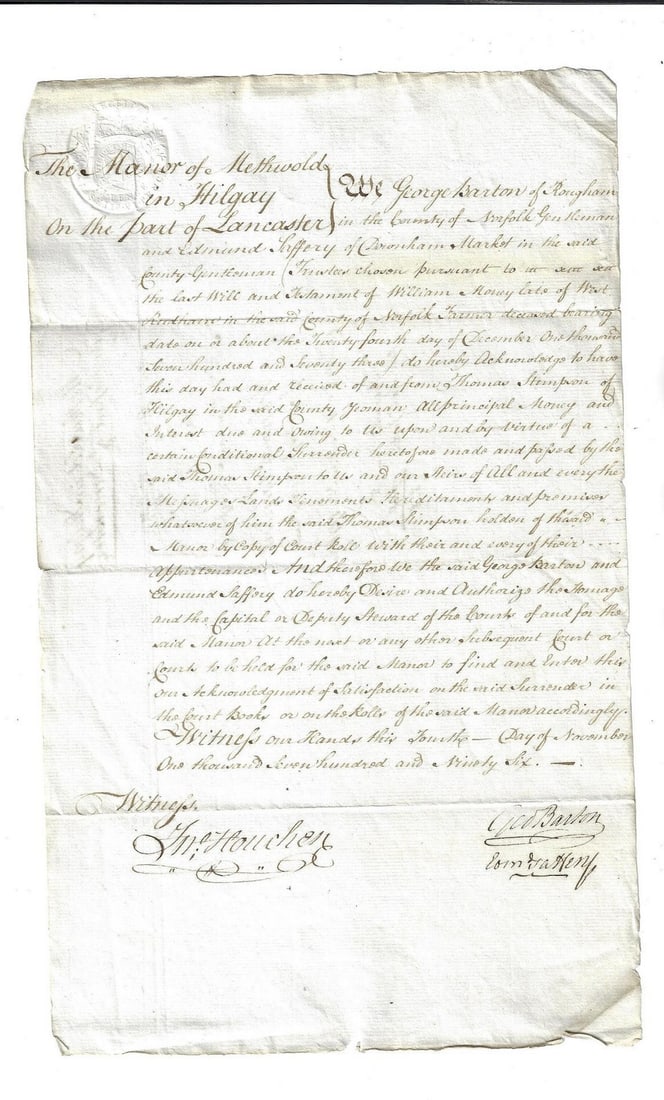 The Manor of Methwold
in Hilgay
On the part of Lancaster
We George Barton of Rougham
in the County of Norfolk Gentleman
and Edmund Saffery of Downham Market in the said
County Gentleman (Trustees chosen pursuant to
the last Will and Testament of William Money late of West
in the said County of Norfolk Farmer deceased bearing
date on or about the Twenty fourth day of December One thousand
Seven hundred and Seventy three) do hereby Acknowledge to have
this day had and received of and from Thomas Stimpson of
Hilgay in the said County Yeoman All principal Money and
Interest due and owing to Us upon and by virtue of a
certain Conditional Surrender heretofore made and passed by the
said Thomas Stimpson to Us and our Heirs of All and every the
Messuages Lands Tenements Hereditaments and premises
whatsoever of him the said Thomas Stimpson holden of the said
Manor by Copy of Court Roll With their and every of their
Appurtenances And therefore We the said George Barton and
Edmund Saffery do hereby Desire and Authorize the Homage
and the Capital or Deputy Steward of the Courts of and for the
said Manor At the next or any other Subsequent Court or
Courts to be held for the said Manor to find and Enter this
our Acknowledgment of Satisfaction on the said Surrender in
the Court Books or on the Rolls of the said Manor accordingly.
Witness our Hands this Fourth — Day of November
One thousand Seven hundred and Ninety Six. —
Witness.
Jno. Houchen
Geo Barton
Edmd Saffery